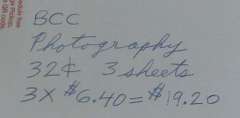 BCC
Photography
32¢ 3 sheets
3 X $6.40 = $19.20